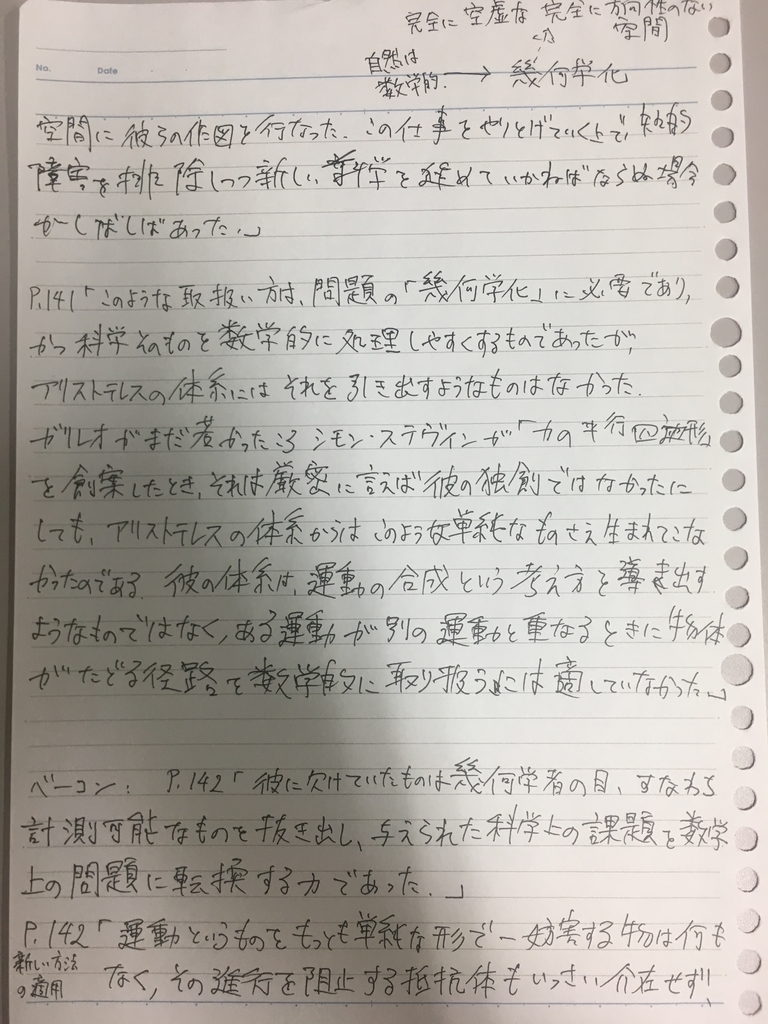 完全に 空虚な 完全に 方向性のない
空間
No. Date
自然は
数学的 → 幾何学化
空間に彼らの作図を行なった。この仕事をやりとげていく上で、知的
障害を排除しつつ新しい科学を進めていかねばならぬ場合
がしばしばあった。」
P.141「このような取扱い方は、問題の「幾何学化」に必要であり、
かつ科学そのものを数学的に処理しやすくするものであったが、
アリストテレスの体系にはそれを引き出すようなものはなかった。
ガリレオがまだ若かったころ シモン・ステヴィンが「力の平行四辺形」
を創案したとき、それは厳密に言えば彼の独創ではなかったに
しても、アリストテレスの体系からはこのような単純なものさえ生まれてこな
かったのである。彼の体系は、運動の合成という考え方を導き出す
ようなものではなく、ある運動が別の運動と重なるときに物体
がたどる径路を数学的に取り扱うには適していなかった。」
ベーコン： P.142「彼に欠けていたものは幾何学者の目、すなわち
計測可能なものを抜き出し、与えられた科学上の課題を数学
上の問題に転換する力であった。」
P.142「運動というものをもっとも単純な形で―妨害する物は何も
新しい方法
の適用
なく、その進行を阻止する抵抗体もいっさい介在せず、